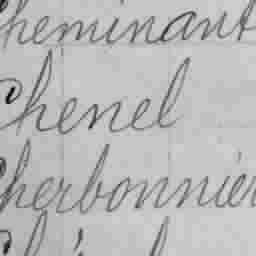 Cheminant
Chenel
Cherbonnier